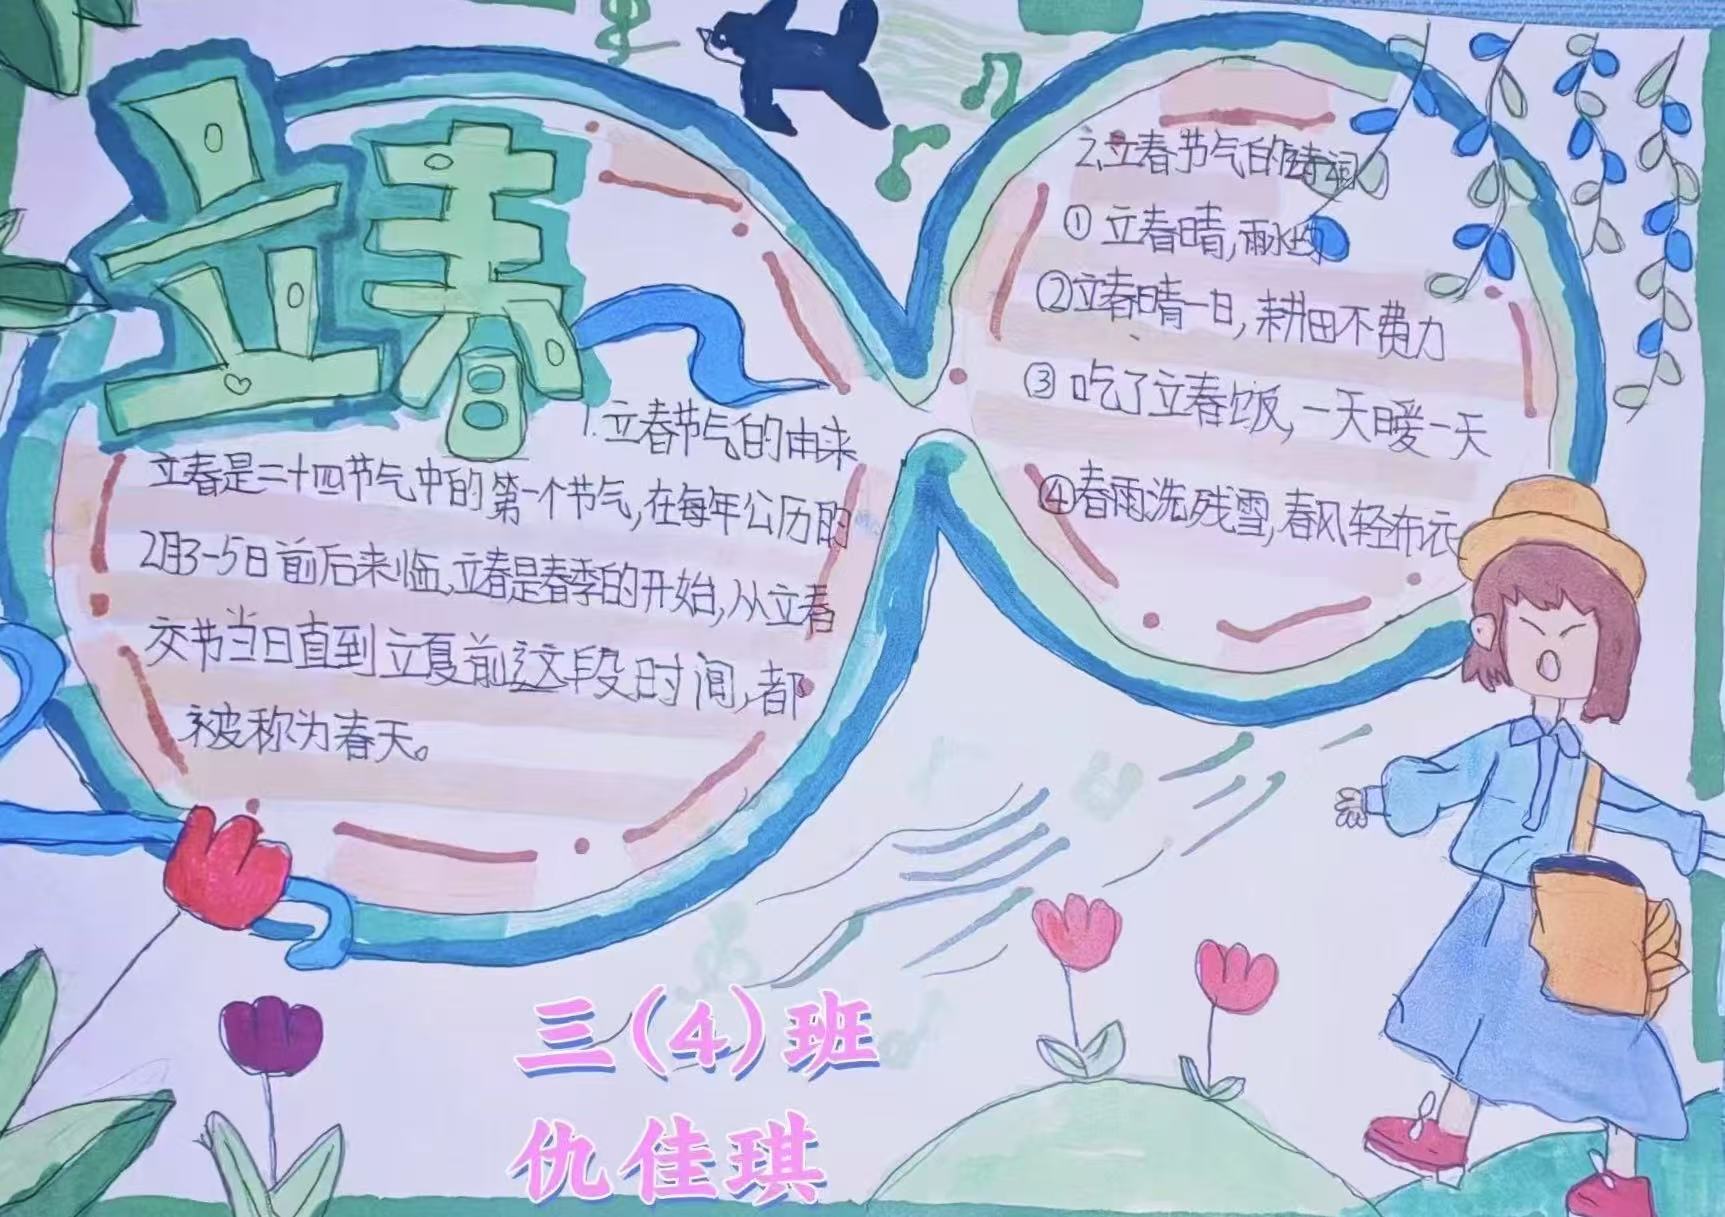 立春
1.立春节气的由来
立春是二十四节气中的第一个节气,在每年公历的
2月3-5日前后来临,立春是春季的开始,从立春
交节当日直到立夏前这段时间,都
被称为春天。
2.立春节气的诗词
① 立春晴,雨水均
②立春晴一日,耕田不费力
③ 吃了立春饭,一天暖一天
④春雨洗残雪,春风轻布衣
三(4)班
仇佳琪